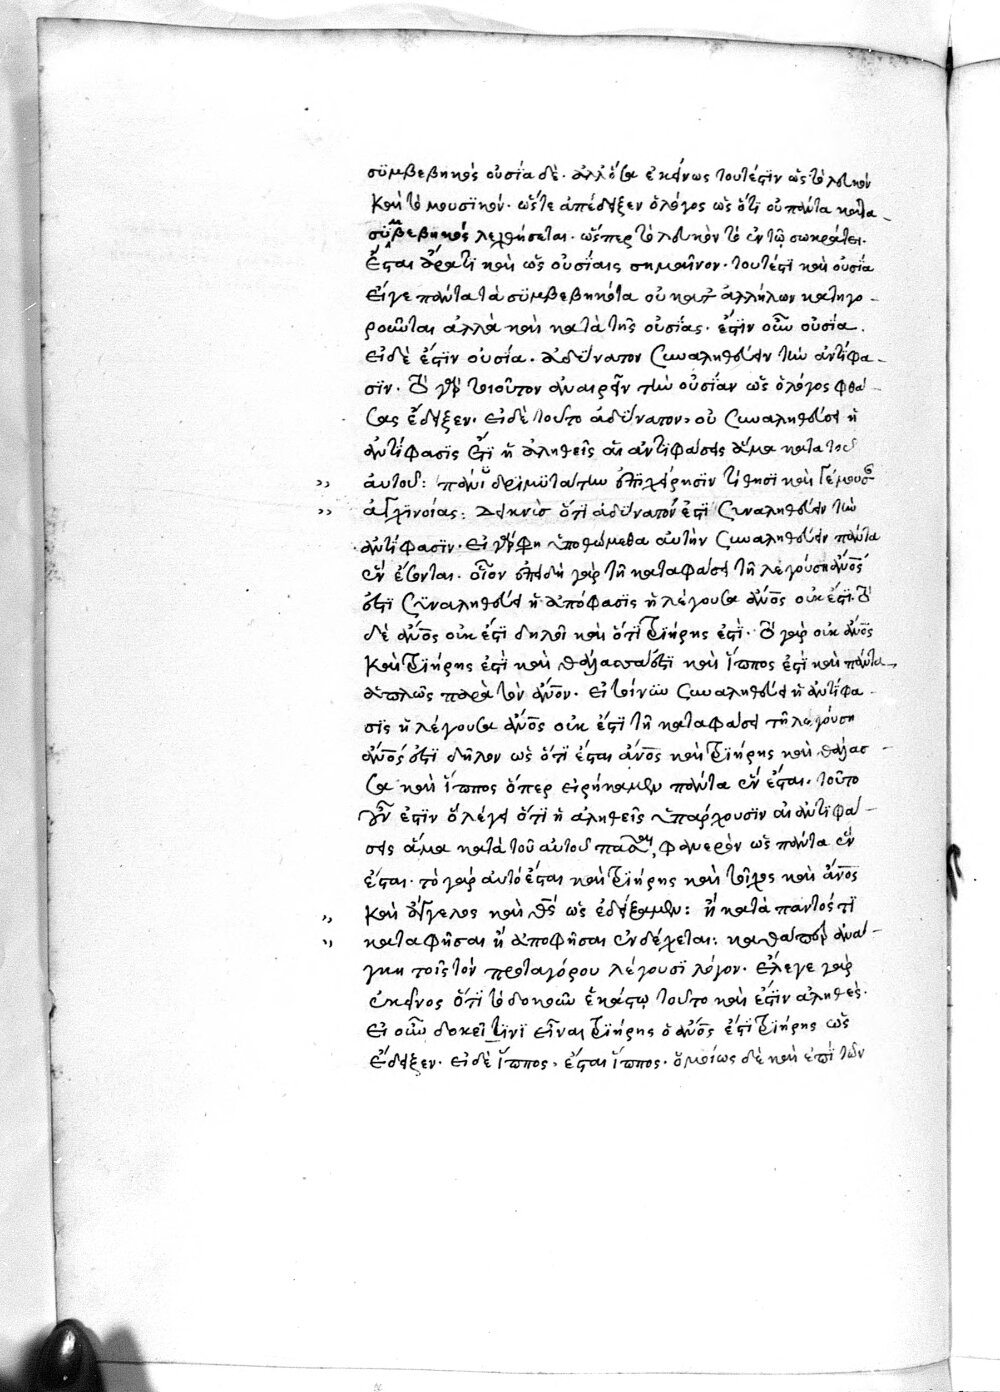 συμβεβηκὸς οὐσία δὲ. ἀλλ' ὅτα ἐκείνως τουτέστιν ὡς τὸ λευκὸν
καὶ τὸ μουσικόν. ὥστε ἀπέδειξεν ὁ λόγος ὡς ὅτι οὐ πάντα κατα
συμβεβηκὸς λεχθήσεται. ὥσπερ τὸ λευκὸν τὸ ἐν τῷ σωκράτει.
ἔσται ἄρα τι καὶ ὡς οὐσίαις σημαῖνον. τουτέστι καὶ οὐσία
εἴγε πάντα τὰ συμβεβηκότα οὐ κατ' ἀλλήλων κατηγο-
ροῦνται ἀλλὰ καὶ κατὰ τῆς οὐσίας. ἔστιν οὖν οὐσία.
εἰ δὲ ἔστιν οὐσία. ἀδύνατον συναληθεύειν τὴν ἀντίφα-
σιν. τὸ γὰρ τοιοῦτον ἀναιρεῖν τὴν οὐσίαν ὡς ὁ λόγος φθά-
σας ἔδειξεν. εἰ δὲ τοῦτο ἀδύνατον, οὐ συναληθεύσει ἡ
ἀντίφασις ἔτι ἢ ἀληθεῖς αἱ ἀντιφάσεις ἅμα κατὰ τοῦ
αὐτοῦ: πάνυ δριμυτάτην ἐπιχείρησιν τίθησι καὶ γέμουσαν
ἀγχινοίας: δεικνὺς ὅτι ἀδύνατόν ἐστι συναληθεύειν τὴν
ἀντίφασιν. εἰ γὰρ φη ὑποθώμεθα αὐτὴν συναληθεύειν πάντα
ἓν ἔσονται. οἷον ἐπειδὴ γὰρ τῇ καταφάσει τῇ λεγούσῃ ἄνος
ἐστι συναληθεύει ἡ ἀπόφασις ἡ λέγουσα ἄνος οὐκ ἔστι. τὸ
δὲ ἄνος οὐκ ἔστι δηλοῖ καὶ ὅτι τριήρης ἐστὶ. τὸ γὰρ οὐκ ἄνος
καὶ τριήρης ἐστὶ καὶ θάλασσά ἐστι καὶ ἵππος ἐστὶ καὶ πάντα
ἁπλῶς παρὰ τὸν ἄνον. εἰ τοίνυν συναληθεύει ἡ ἀντίφα-
σις ἡ λέγουσα ἄνος οὐκ ἔστι τῇ καταφάσει τῇ λεγούσῃ
ἄνος ἐστι δῆλον ὡς ὅτι ἔσται ἄνος καὶ τριήρης καὶ θάλασ-
σα καὶ ἵππος ὅπερ εἰρήκαμεν πάντα ἓν ἔσται. τοῦτο
οὖν ἐστιν ὃ λέγει ὅτι ἢ ἀληθεῖς ὑπάρχουσιν αἱ ἀντιφά-
σεις ἅμα κατὰ τοῦ αὐτοῦ πᾶσαι, φανερὸν ὡς πάντα ἓν
ἔσται. τὸ γὰρ αὐτὸ ἔσται καὶ τριήρης καὶ τοῖχος καὶ ἄνος
καὶ ἄγγελος καὶ θς ὡς ἐδείξαμεν: ἢ κατὰ παντός τι
καταφῆσαι ἢ ἀποφῆσαι ἐνδέχεται: καθάπερ ἀνά-
γκη τοῖς τὸν πρωταγόρου λέγουσι λόγον. ἔλεγε γὰρ
ἐκεῖνος ὅτι τὸ δοκοῦν ἑκάστῳ τοῦτο καὶ ἔστιν ἀληθὲς.
εἰ οὖν δοκεῖ τινι εἶναι τριήρης ὁ ἄνος ἐστὶ τριήρης ὡς
ἔδειξεν. εἰ δὲ ἵππος, ἔσται ἵππος. ὁμοίως δὲ καὶ ἐπὶ τῶν